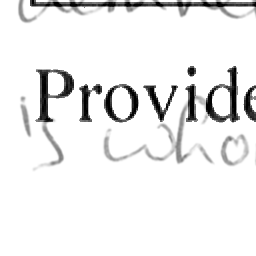 Provide
is who